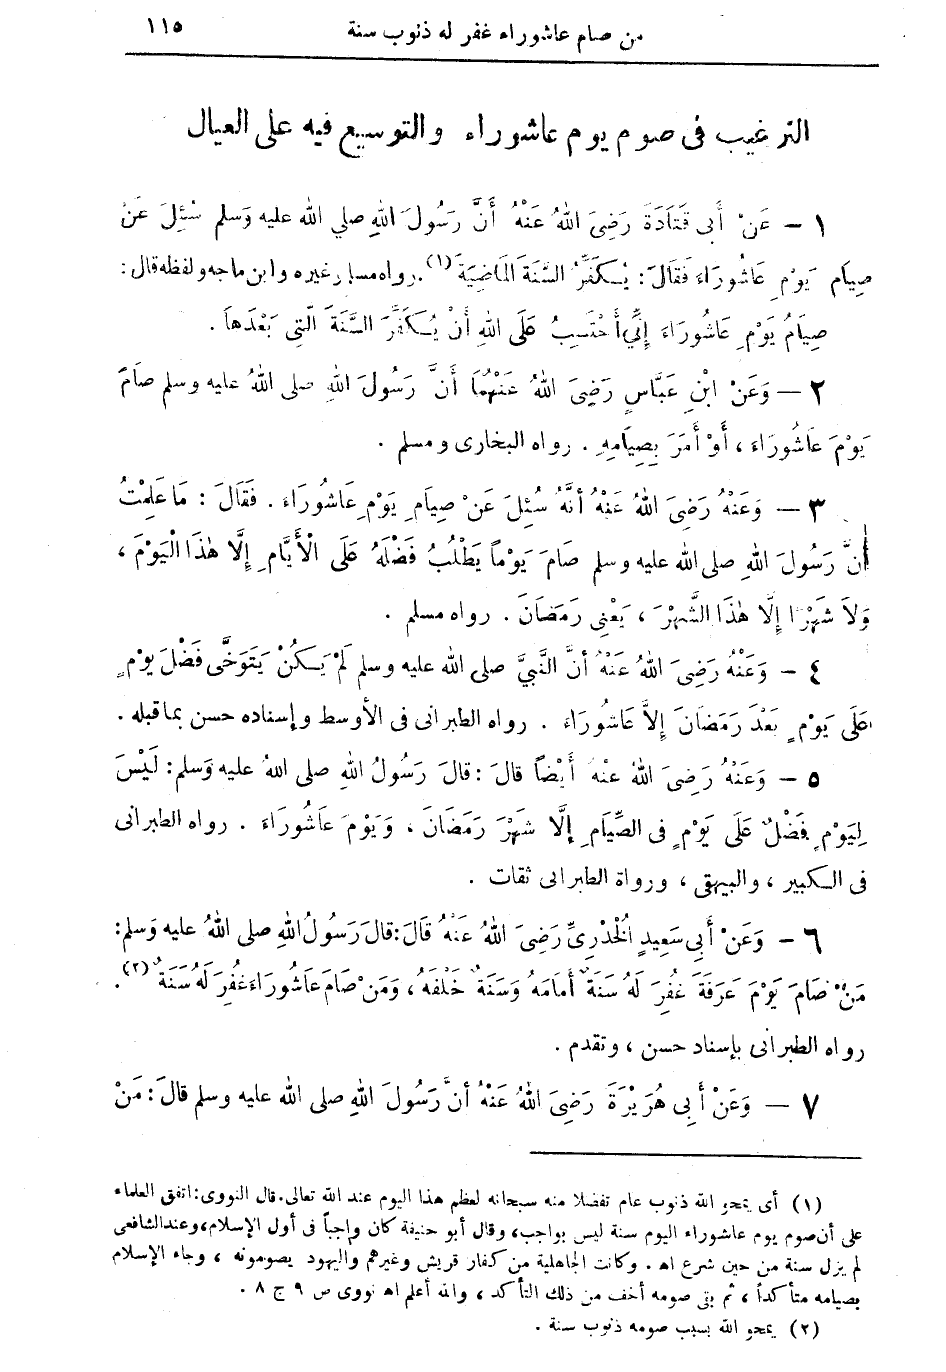 من صام عاشوراء غفر له ذنوب سنة ١١٥
الترغيب فى صوم يوم عاشوراء والتوسيع فيه على العيال
١ – عَنْ أَبِى قَتَادَةَ رَضِىَ اللهُ عَنْهُ أَنَّ رَسُولَ اللهِ صلي الله عليه وَسلم سُئِلَ عَنْ
صِيَامِ يَوْمِ عَاشُورَاءَ فَقَالَ: يُكَفِّرُ السَّنَةَ الْمَاضِيَةَ (١). رواه مسلم وغيره وابن ماجه ولفظه قال:
صِيَامُ يَوْمِ عَاشُورَاءَ إِنِّي أَحْتَسِبُ عَلَى اللهِ أَنْ يُكَفِّرَ السَّنَةَ الَّتِى بَعْدَهَا .
٢ – وَعَنْ ابْنِ عَبَّاسٍ رَضِىَ اللهُ عَنْهُمَا أَنَّ رَسُولَ اللهِ صلى اللهُ عليه وسلم صَامَ
يَوْمَ عَاشُورَاءَ ، أَوْ أَمَرَ بِصِيَامِهِ . رواه البخارى ومسلم .
٣ – وَعَنْهُ رَضِىَ اللهُ عَنْهُ أَنَّهُ سُئِلَ عَنْ صِيَامِ يَوْمِ عَاشُورَاءَ . فَقَالَ : مَا عَلِمْتُ
أَنَّ رَسُولَ اللهِ صلى الله عليه وسلم صَامَ يَوْماً يَطْلُبُ فَضْلَهُ عَلَى الْأَيَّامِ إِلَّا هٰذَا الْيَوْمَ ،
وَلاَ شَهْرًا إِلَّا هٰذَا الشَّهْرَ ، يَعْنِى رَمَضَانَ . رواه مسلم .
٤ – وَعَنْهُ رَضِىَ اللهُ عَنْهُ أَنَّ النَّبِيَّ صلى الله عليه وسلم لَمْ يَكُنْ يَتَوَخَّى فَضْلَ يَوْمٍ
عَلَى يَوْمٍ بَعْدَ رَمَضَانَ إِلاَّ عَاشُورَاءَ . رواه الطبرانى فى الأوسط وإسناده حسن بما قبله .
٥ – وَعَنْهُ رَضِىَ اللهُ عَنْهُ أَيْضاً قالَ : قالَ رَسُولُ اللهِ صلى اللهُ عليه وَسلم: لَيْسَ
لِيَوْمٍ فَضْلٌ عَلَى يَوْمٍ فِى الصِّيَامِ إِلَّا شَهْرَ رَمَضَانَ ، وَيَوْمَ عَاشُورَاءَ . رواه الطبرانى
فى الكبير ، والبيهقى ، ورواة الطبرانى ثقات .
٦ – وَعَنْ أَبِى سَعِيدٍ الْخُدْرِىِّ رَضِىَ اللهُ عَنْهُ قَالَ: قالَ رَسُولُ اللهِ صلى اللهُ عليه وَسلم:
مَنْ صَامَ يَوْمَ عَرَفَةَ غُفِرَ لَهُ سَنَةٌ أَمَامَهُ وَسَنَةٌ خَلْفَهُ ، وَمَنْ صَامَ عَاشُورَاءَ غُفِرَ لَهُ سَنَةٌ (٢).
رواه الطبرانى بإسناد حسن ، وتقدم .
٧ – وَعَنْ أَبِى هُرَيْرَةَ رَضِىَ اللهُ عَنْهُ أَنَّ رَسُولَ اللهِ صلى الله عليه وسلم قالَ: مَنْ
(١) أى يمحو الله ذنوب عام تفضلا منه سبحانه لعظم هذا اليوم عند الله تعالى. قال النووى: اتفق العلماء
على أن صوم يوم عاشوراء اليوم سنة ليس بواجب، وقال أبو حنيفة كان واجباً فى أول الإسلام، وعند الشافعى
لم يزل سنة من حين شرع اهـ . وكانت الجاهلية من كفار قريش وغيرهم واليهود يصومونه ، وجاء الإسلام
بصيامه متأكداً ، ثم بقى صومه أخف من ذلك التأكد ، والله أعلم اهـ نووى ص ٩ ج ٨ .
(٢) يمحو الله بسبب صومه ذنوب سنة .